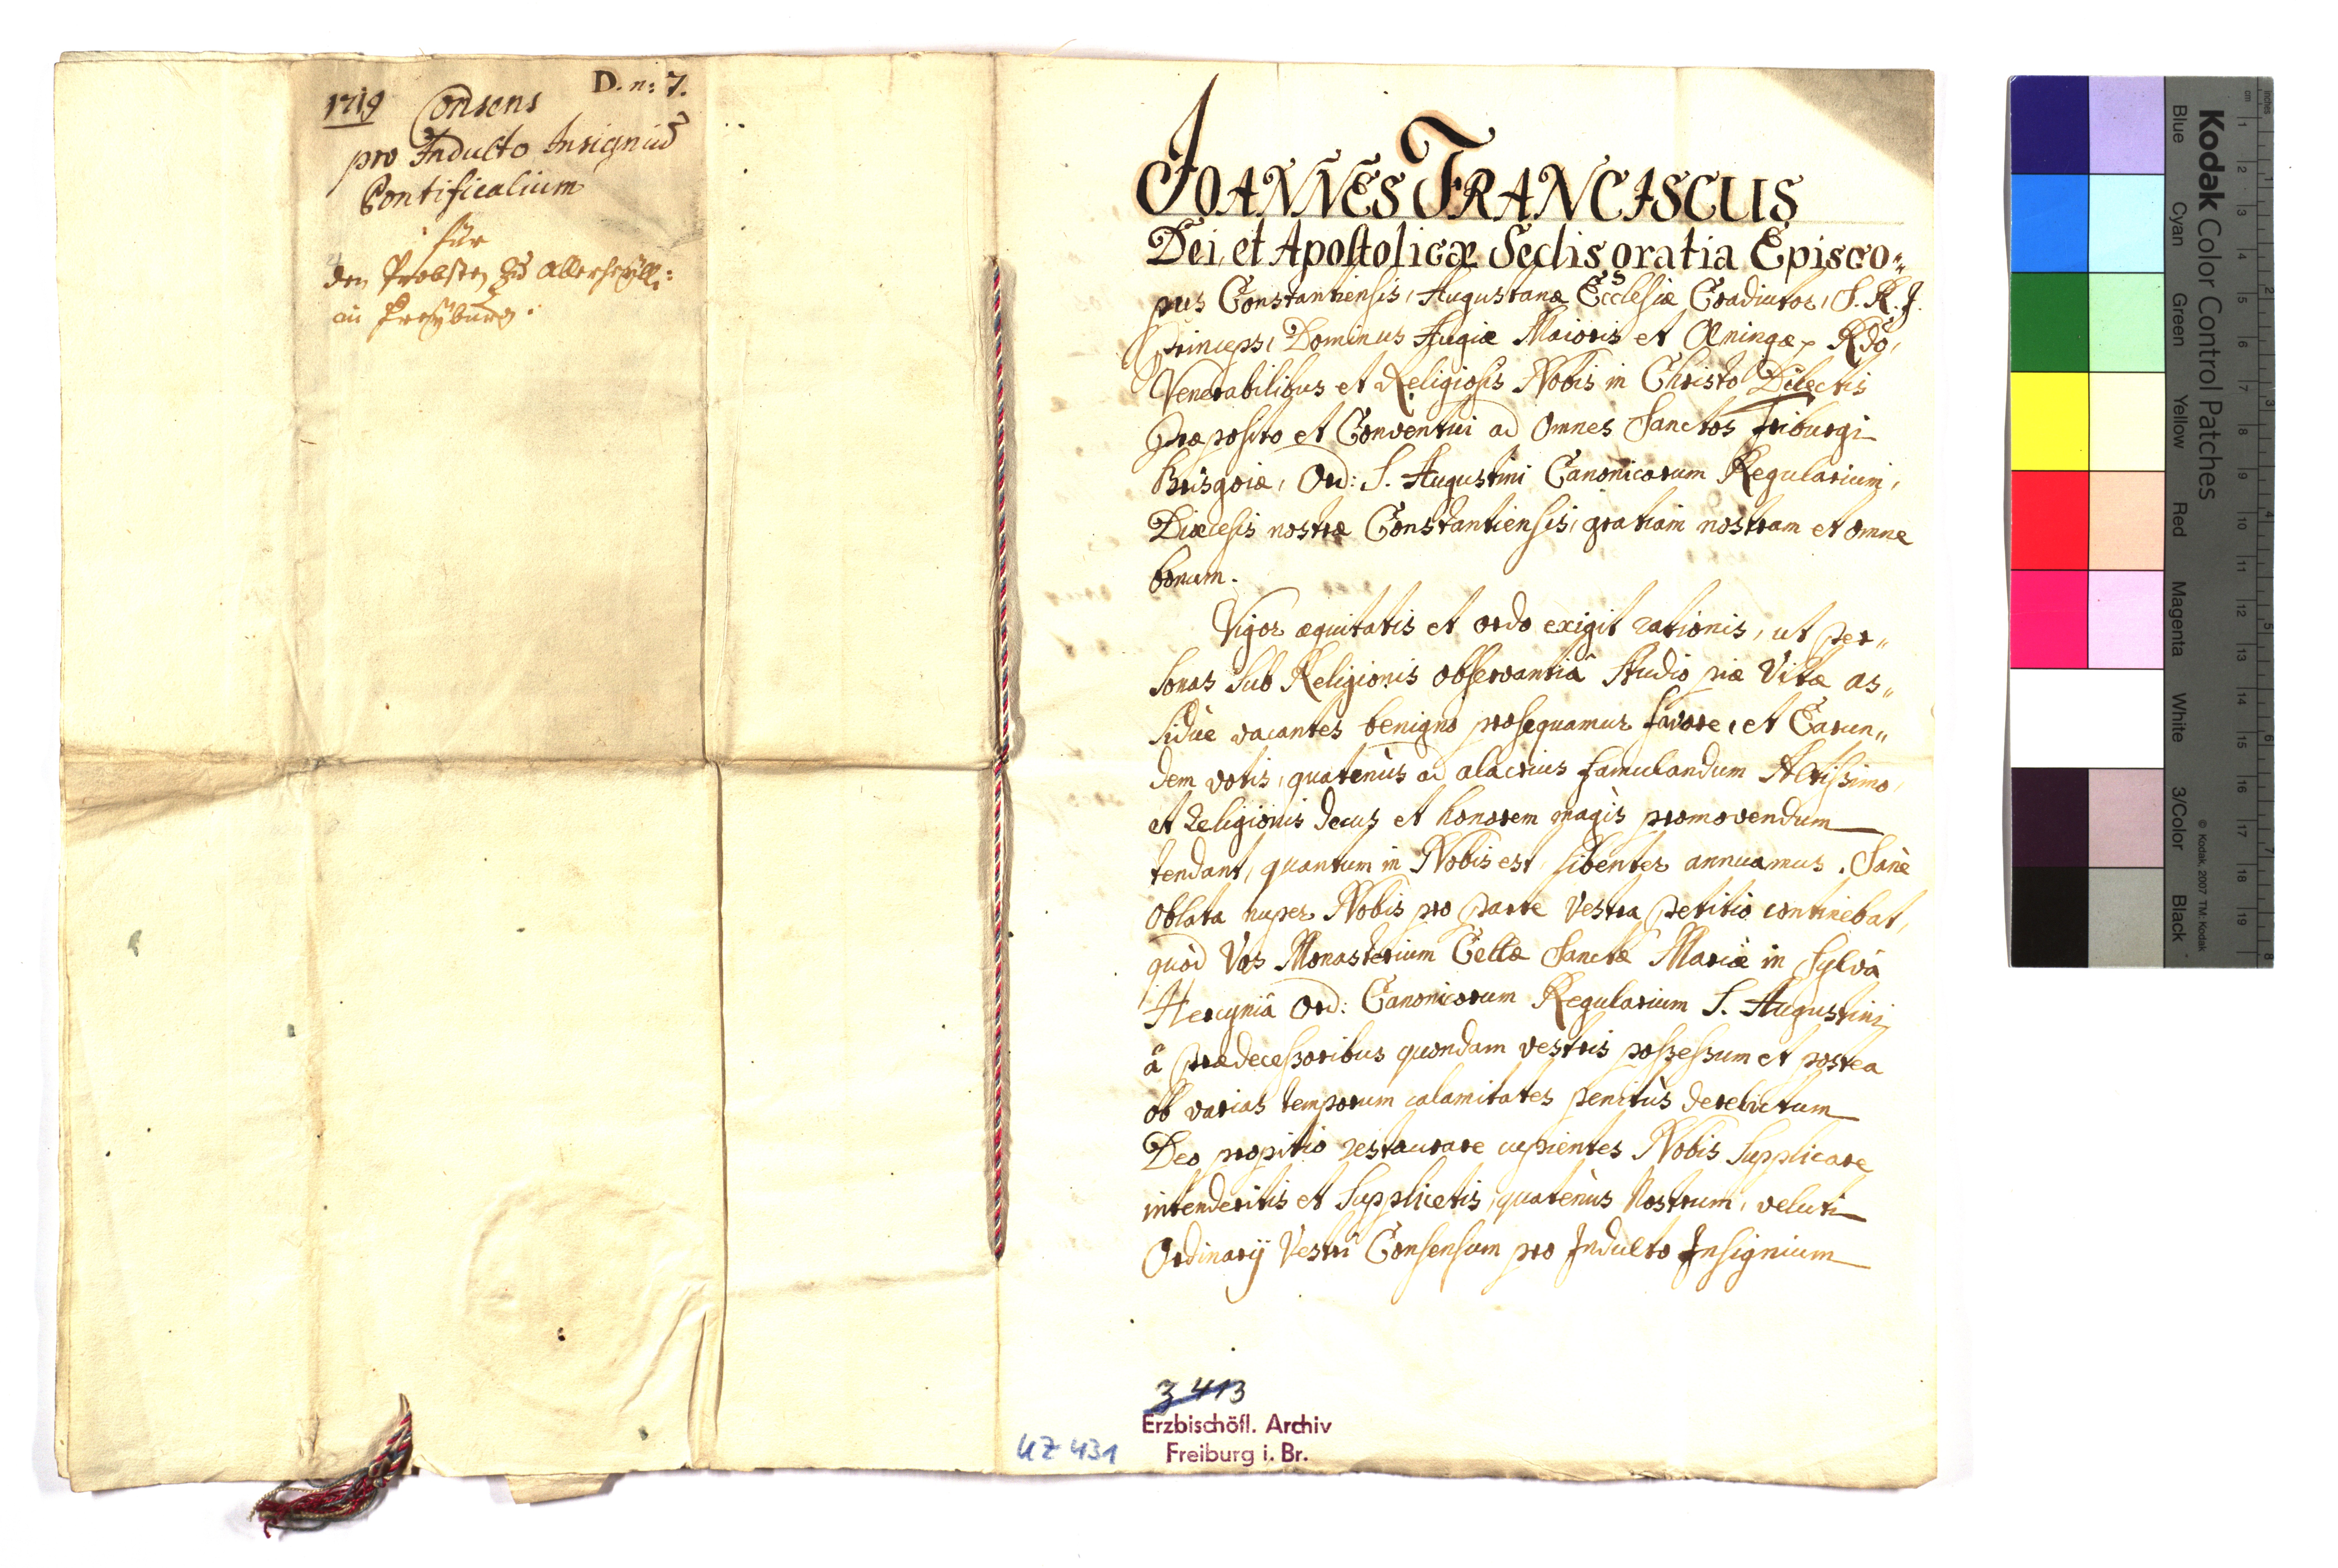 D. n: 7.
1719 Consens
pro Indulto Insigniũ
Pontificalium
für
den Probsten zu Allerheyll:
in Freyburg.
JOANNES FRANCISCUS
Dei, et Apostolicæ Sedis gratia Episco„
pus Constantiensis, Augustanæ Ecclesiæ Coadiutor, S. R. J.
Princeps, Dominus Augiæ Maioris et Æningæ Rdo,
Venerabilibus et Religiosis Nobis in Christo Dilectis
Præposito et Conventui ad Omnes Sanctos Friburgi
Brisgoiæ, Ord: S. Augustini Canonicorum Regularium,
Diæcesis nostræ Constantiensis, gratiam nostram et omne
bonum.
Vigor æquitatis et ordo exigit rationis, ut Per„
sonas sub Religionis observantiâ studio piæ Vitæ as„
siduè vacantes benigno prosequamur favore, et Earun„
dem votis, quatenùs ad alacrius famulandum Altissimo,
et Religionis decus et honorem magìs promovendum
tendant, quantum in Nobis est, libenter annuamus. Sanè
oblata nuper Nobis pro parte Vestra petitio continebat,
quòd Vos Monasterium Cellæ Sanctæ Mariæ in Sylvâ
Hercyniâ Ord: Canonicorum Regularium S. Augustini
â Prædecessoribus quondam vestris possessum et postea
ob varias temporum calamitates penitùs derelictum
Deo propitio restaurare cupientes Nobis supplicare
intenderitis et supplicetis, quatenùs Nostrum, veluti
Ordinarij Vestri Consensum pro Indulto Insignium
3413
Erzbischöfl. Archiv
Freiburg i. Br.
UZ 431
Kodak Color Control Patches
Blue Cyan Green Yellow Red Magenta White 3/Color Black
© Kodak, 2007 TM: Kodak
cm 1 2 3 4 5 6 7 8 9 10 11 12 13 14 15 16 17 18 19
inches 1 2 3 4 5 6 7 8